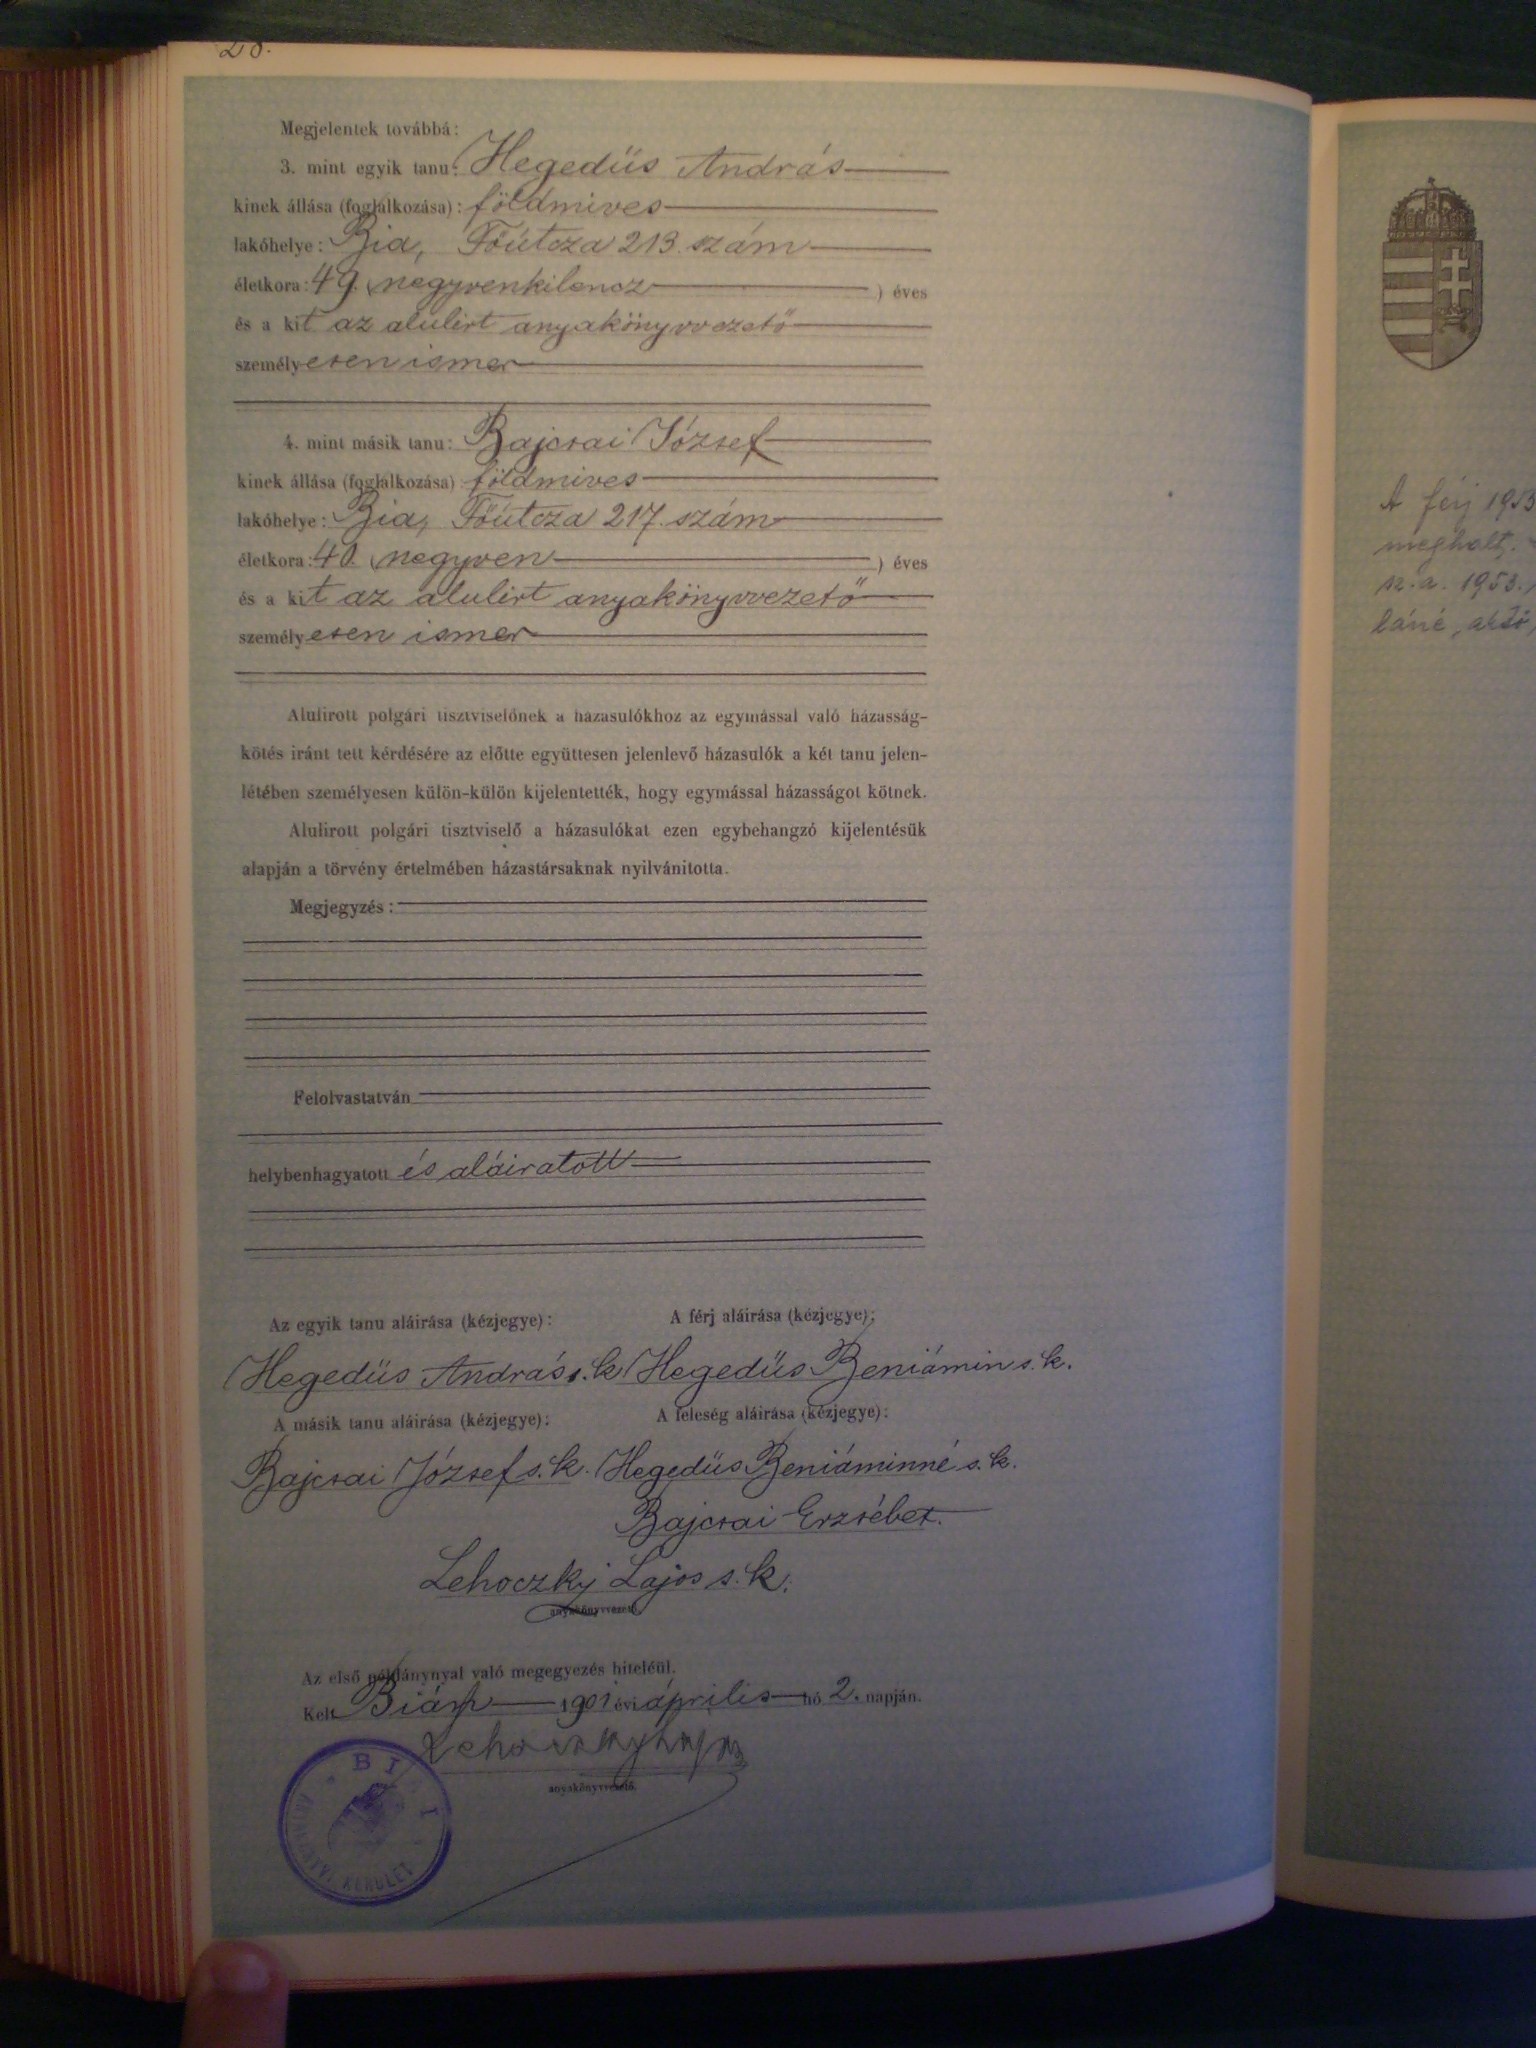 28.
Megjelentek továbbá:
3. mint egyik tanu: Hegedüs András
kinek állása (foglalkozása): földmives
lakóhelye: Bia, Főútcza 213. szám
életkora: 49. (negyvenkilencz ) éves
és a kit az alulirt anyakönyvvezető
személyesen ismer
4. mint másik tanu: Bajcsai József
kinek állása (foglalkozása) földmives
lakóhelye: Bia, Főútcza 217. szám
életkora: 40. (negyven ) éves
és a kit az alulirt anyakönyvvezető
személyesen ismer
Alulirott polgári tisztviselőnek a házasulókhoz az egymással való házasság-
kötés iránt tett kérdésére az előtte együttesen jelenlevő házasulók a két tanu jelen-
létében személyesen külön-külön kijelentették, hogy egymással házasságot kötnek.
Alulirott polgári tisztviselő a házasulókat ezen egybehangzó kijelentésük
alapján a törvény értelmében házastársaknak nyilvánitotta.
Megjegyzés:
Felolvastatván
helybenhagyatott és aláiratott
Az egyik tanu aláirása (kézjegye): A férj aláirása (kézjegye):
Hegedüs András s.k. Hegedüs Beniámin s.k.
A másik tanu aláirása (kézjegye): A feleség aláirása (kézjegye):
Bajcsai József s.k. Hegedüs Beniáminné s.k.
Bajcsai Erzsébet.
Lehoczky Lajos s.k.
anyakönyvvezető.
Az első példánynyal való megegyezés hiteléül.
Kelt Bián 1901 évi április hó 2. napján.
Lehoczky Lajos
anyakönyvvezető.
BIAI
KERÜLET
A férj 1953
meghalt.
1953.